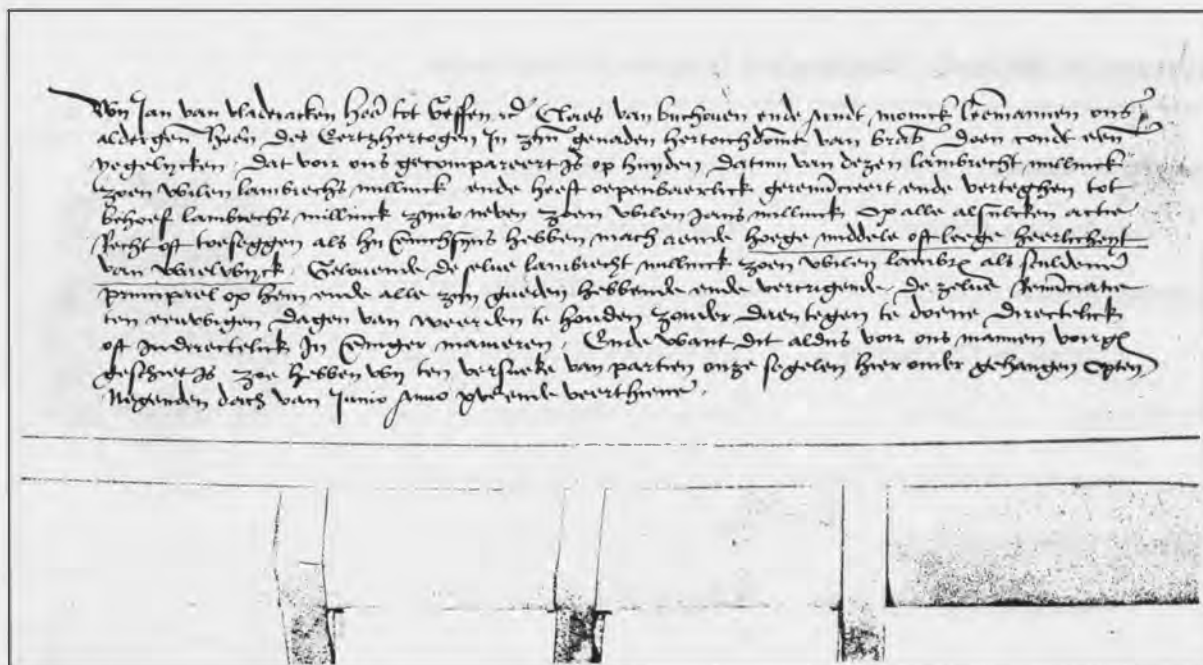 Wij Jan van vladeracken heer tot Geffen rᵈ Claes van buchouen ende Arndt monick leēmannen ons
aldergen̄ heēn des Eertzhertogen In zijnᵈ genaden hertochdōme van brab doen condt eenē
yegelycken Dat voir ons gecompareert is op huyden datum van dezen lambrecht millinck
zoen wilen lambrechs millinck ende heeft oepenbaerlick gerenūcieert ende verteghen tot
behoef lambrechs millinck zyns neven zoen wilen Jans millinck Op alle alsulcken actie
Recht oft toeseggen als hij enichsijns hebben mach aende hoege middele oft leege heerlicheyt
van Waelwijck Gelouende de selue lambrecht millinck zoen wilen lambrs als sculdenē
principael op hem ende alle zijn gueden hebbende ende vercrigende de zelue Renūciatie
ten eeuwigen dagen van weerden te houden zonder daer tegen te doene directelick
oft Indirectelick In eniger manieren Ende want dit aldus voir ons mannen voirs
geschiet is zoe hebben wij ten versueke van partien onze segelen hier onder gehangen Opten
Negenden dach van Junio Anno xvc ende veerthiene